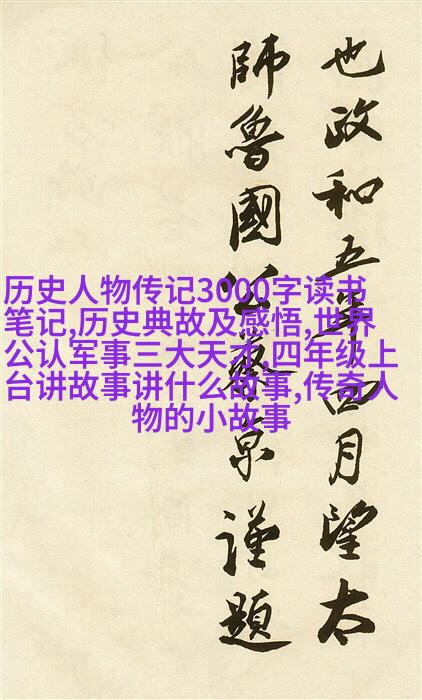 也政和五年四月望太
師魯國公蔡京謹題
历史人物传记3000字读书
笔记,历史典故及感悟,世界
公认军事三大天才,四年级上
台讲故事讲什么故事,传奇人
物的小故事